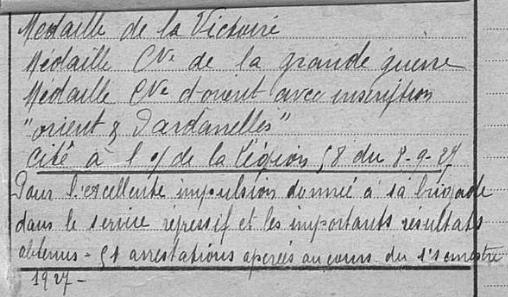 Médaille de la Victoire
Médaille Cve de la grande guerre
Médaille Cve d'orient avec inscription
"orient & Dardanelles"
Cité à l'o/ de la Légion 58 du 8-9-27
Pour l'excellente impulsion donnée à sa brigade
dans le service répressif et les importants résultats
obtenus - 51 arrestations opérées au cours du 1er semestre
1927-